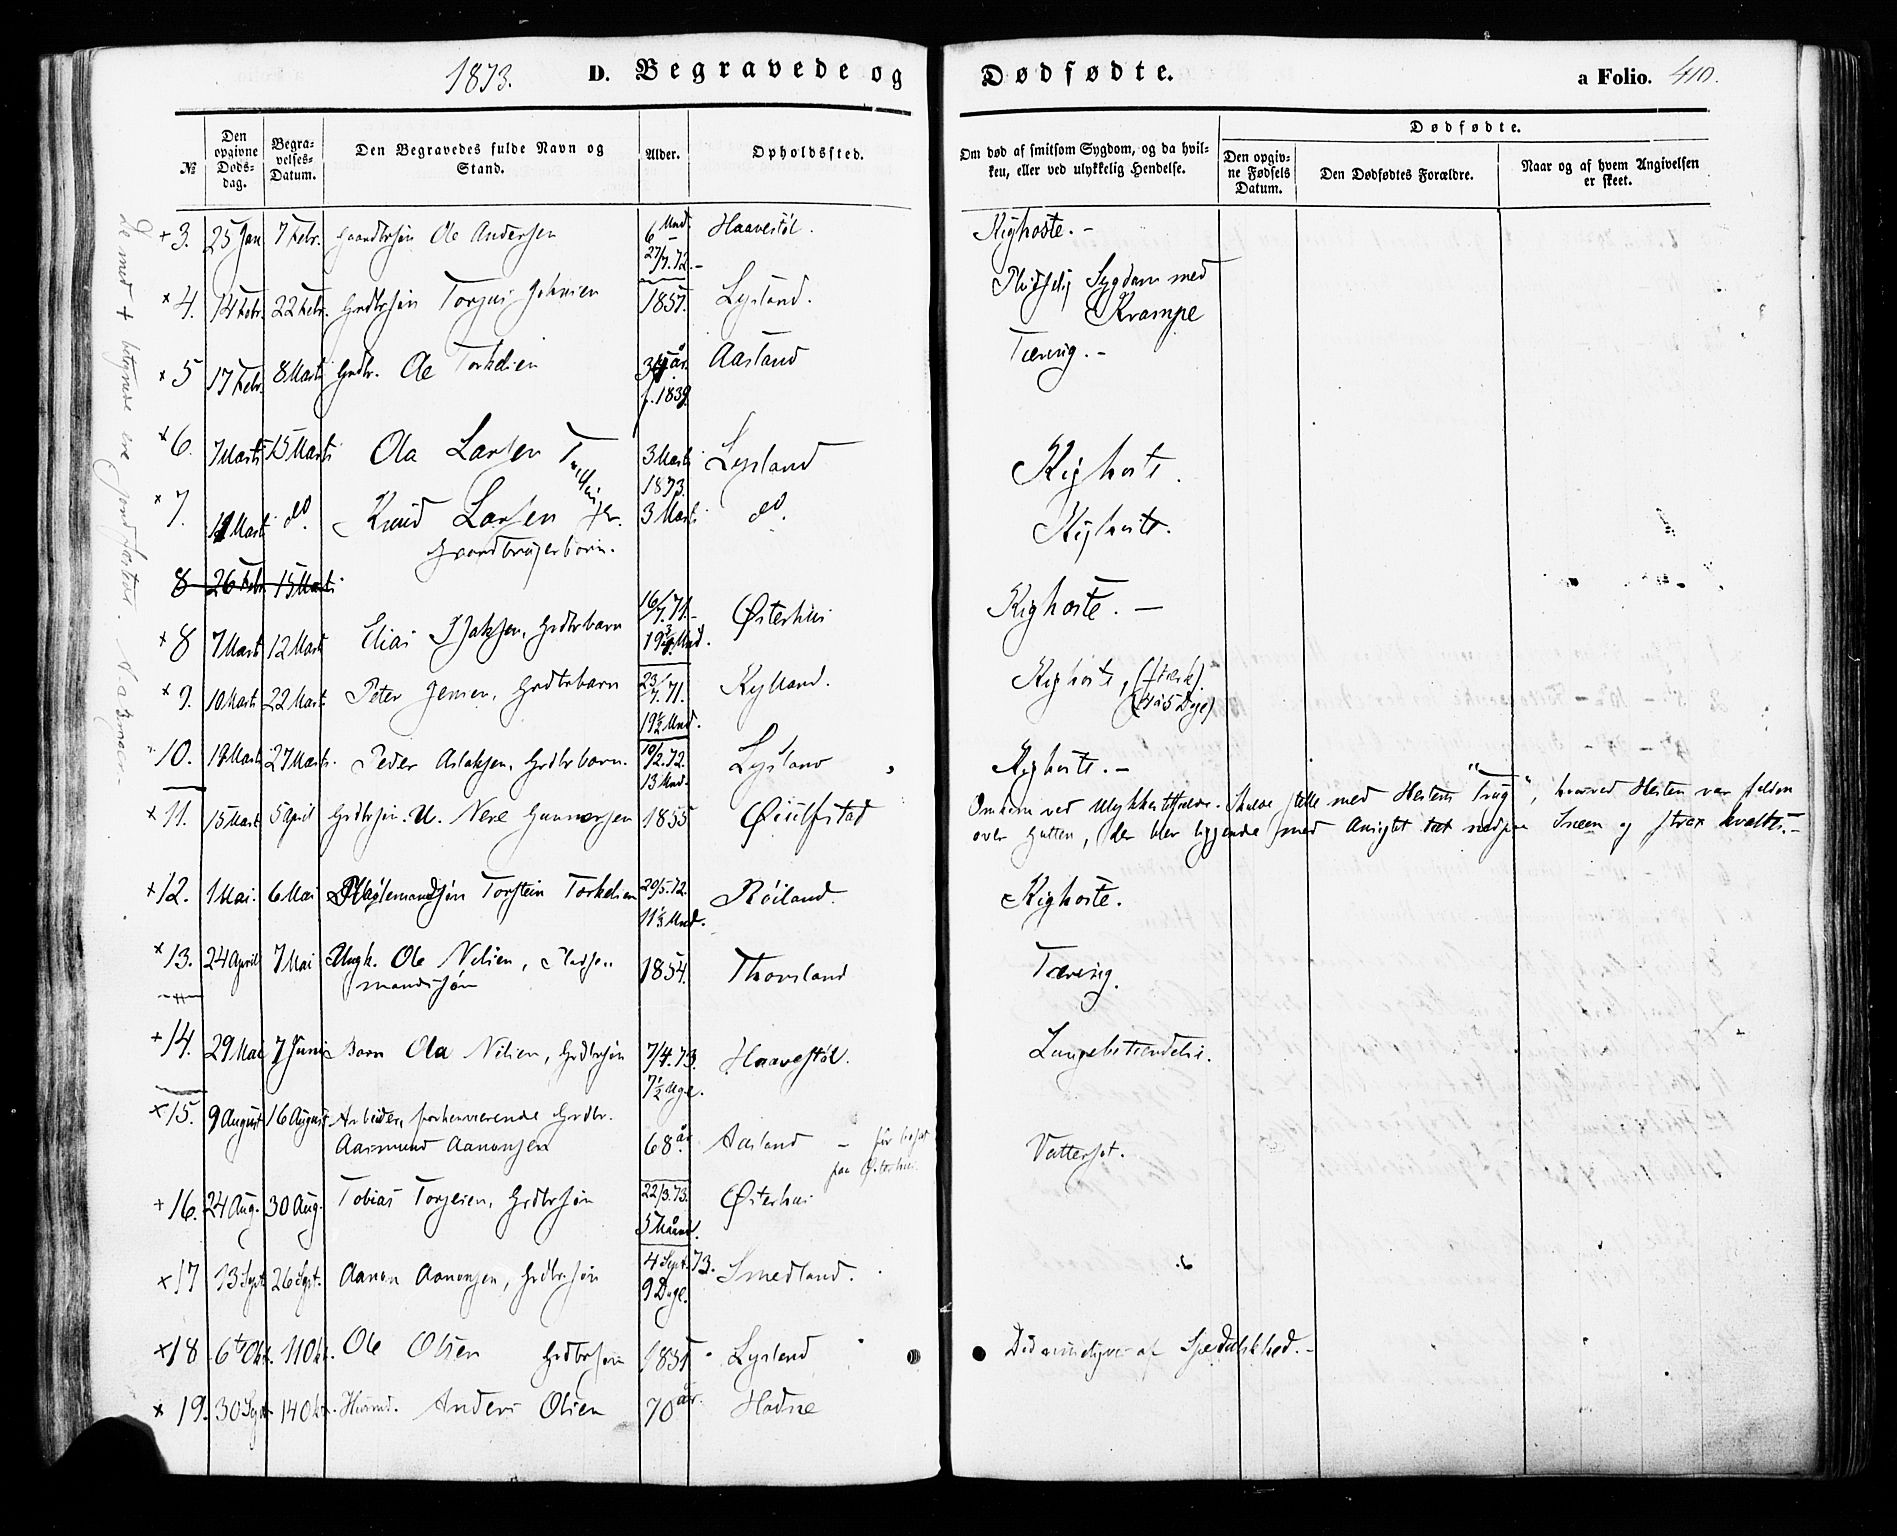 1873. D. Begravede og Dødfødte. a Folio. 410.
№ Den opgivne Døds-dag. Begra-velses-Datum. Den Begravedes fulde Navn og Stand. Alder. Opholdssted. Om død af smitsom Sygdom, og da hvil-ken, eller ved ulykkelig Hendelse. Dødfødte. Den opgiv-ne Fødsels Datum. Den Dødfødtes Forældre. Naar og af hvem Angivelsen er skeet.
+ 3. 25 Jan 7 Febr. Gaardbrsøn Ole Andersen 6 Mnd. 27/7.72.- Haavestøl. Kighoste.-
x 4. 14 Febr. 22 Febr. Grdbrsøn Torjus Johnsen 1857. Lysland. Pludselig Sygdom med
Krampe
x 5 17 Febr. 8 Marts Grdbr. Ole Torkelsen f. 1839. Aasland Tæring.-
x 6. 7 Marts 15 Marts Ola Larsen Tvillinger 3 Marts 1873. Lysland Kighoste.
x 7. 11 Marts do. Knud Larsen 3 Marts do. Kighoste.
Gaardbrugerbørn.
8 26 Febr. 15 Marts
x 8 7 Marts 12 Marts Elias Isaksen, Grdbrbarn 16/7.71.- 19 3/4 Mnd. Østerhus Kighoste.-
x 9. 10 Marts 22 Marts Peter Jensen, Grdbrbarn 23/7.71. 19 1/2 Mnd. Kylland. Kighoste, (stærk)
(4 à 5 Dage)
10. 18 Marts 27 Marts. Peder Aslaksen, Grdbrbarn. 10/2.72. 13 Mnd. Lysland Kighoste.-
x 11. 15 Marts 5 April Grdbrsøn. U. Nere Gunnarsen 1855 Øiulfstad Omkom ved Ulykkestilfælde. Skulde sætte med Hesten "Trug", hvorved Hesten var falden
over Gutten, der blev liggende med Ansigtet tæt ned paa Sneen og strax kvaltes.-
x 12. 1 Mai. 6 Mai Torstein Torkelsen 20/5.72. 11 1/3 Mnd. Røiland. Kighoste.
x 13. 24 April 7 Mai Ungk. Ole Nilsen, Pladse-
mandssøn 1854. Thorsland Tæring.
+ 14. 29 Mai 7 Juni Barn Ola Nilsen, Grdbrsøn 7/4.73. 7 1/2 Uge. Haavestøl. Lungebetændelse.
x 15. 9 August 16 August Arbeider, forhenværende Grdbr.
Aasmund Aanonsen 68 år. Aasland - før bosat
paa Østerhus. Vattersot.
+ 16. 24 Aug. 30 Aug. Tobias Torjersen, Grdbrsøn 22/3.73. 5 Måned. Østerhus
x 17 13 Sept 26 Sept. Aanon Aanonsen, Grdbrsøn 4 Sept. 73. 9 Dage. Smedland.
x 18 6te Okt. 11 Okt. Ole Olsen Grdbrsøn 1851 Lysland Død af Spedalskhed.-
x 19. 30 Sept 14 Okt. Huusmd. Anders Olsen 70 år. Hodne
De med + betegnede ere jordfæstet.